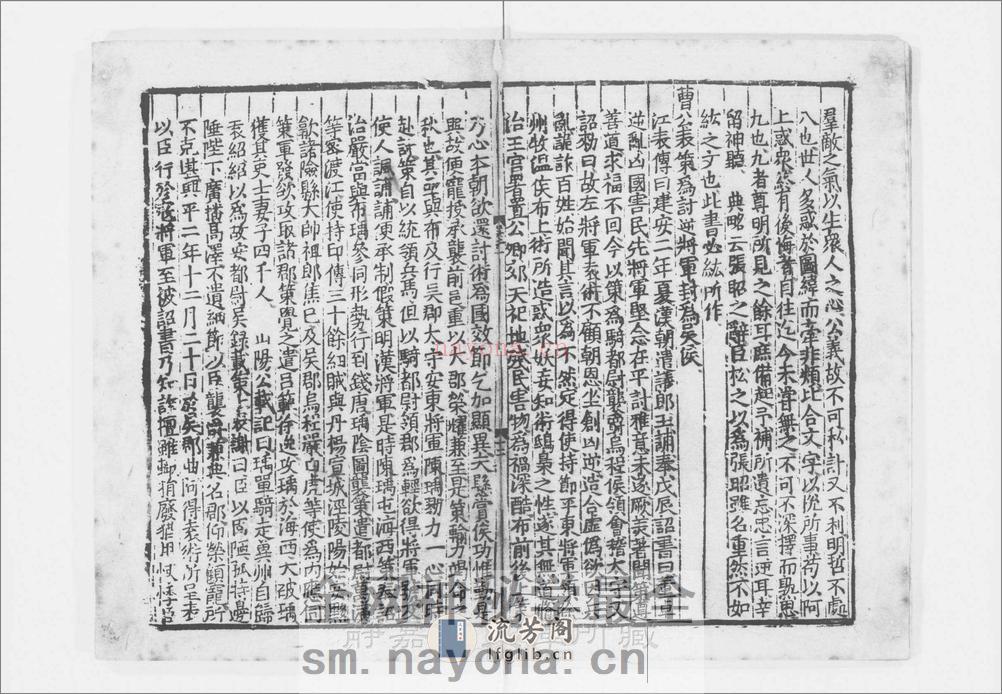 羣敵之氣以生衆人之心公義故不可私計又不利明哲不處
八也世人多惑於圖緯而牽非類比合文字以恱所事苟以阿
上惑衆終有後悔者自往迄今未甞無之不可不深擇而熟思
九也九者尊明所見之餘耳庶備起予補所遺忘忠言逆耳幸
留神聽 典略云張昭之辭臣松之以爲張昭雖名重然不如
紘之文也此書必紘所作
曹公表策爲討逆將軍封爲吳侯
江表傳曰建安二年夏漢朝遣議郎王誧奉戊辰詔書曰董卓
逆亂凶國害民先將軍堅念在平討雅意未遂厥美著聞策遵
善道求福不回今以策爲騎都尉襲爵烏程侯領會稽太守又
詔勑曰故左將軍袁術不顧朝恩坐創凶逆造合虛僞欲因兵
亂詭詐百姓始聞其言以爲不然定得使持節平東將軍領徐
州牧溫侯布上術所造惑衆妖妄知術鴟梟之性遂其無道修
治王宮署置公卿郊天祀地殘民害物爲禍深酷布前後上策
乃心本朝欲還討術爲國效節乞加顯異夫懸賞俟功惟勤是
與故便寵授承襲前邑重以大郡榮耀兼至是策輸力竭命之
秋也其亟與布及行吳郡太守安東將軍陳瑀勠力一心同時
赴討策自以統領兵馬但以騎都尉領郡爲輕欲得將軍號
使人諷誧誧便承制假策明漢將軍是時陳瑀屯海西策奉詔
治嚴當與布瑀參同形勢行到錢唐瑀陰圖襲策遣都尉
等密渡江使持印傳三十餘紐賊與丹楊宣城涇陵陽始安黟
歙諸險縣大帥祖郎焦已及吳郡烏程嚴白虎等使爲內應伺
策軍發欲攻取諸郡策覺之遣呂範徐逸攻瑀於海西大破瑀
獲其吏士妻子四千人 山陽公載記曰瑀單騎走冀州自歸
袁紹紹以爲故安都尉吳録載策上表謝曰臣以固陋孤持邊
陲陛下廣播高澤不遺細節以臣襲爵兼典名郡仰榮顧寵所
不克堪興平二年十二月二十日於吳郡曲阿得袁術所呈表
以臣行殄寇將軍至被詔書乃知詐擅雖輒捐廢猶用
nayona.cn
流芳閣
lfglib.cn
sm.nayona.cn